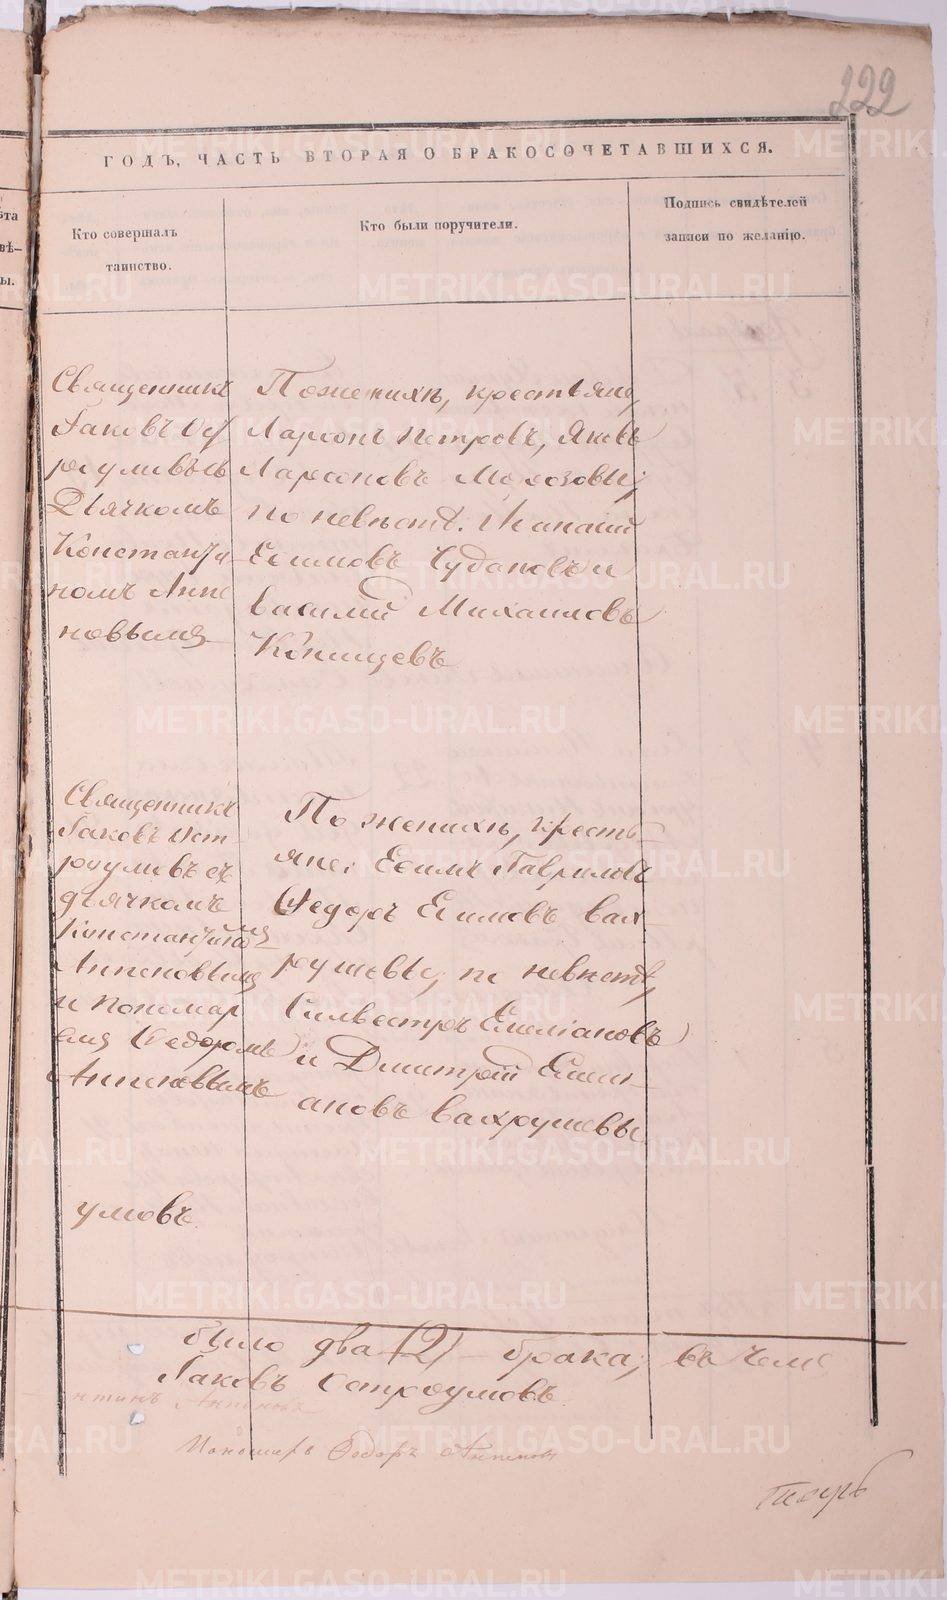 222
ГОДЪ, ЧАСТЬ ВТОРАЯ О БРАКОСОЧЕТАВШИХСЯ.
Кто совершалъ
таинство.
Кто были поручители.
Подпись свидѣтелей
записи по желанію.
Священникъ
Іаковъ Ост
роумовъ съ
Дьячкомъ
Константи
номъ Анпе
новымъ
По женихѣ, крестьяне,
Ларіонъ Петровъ, Яковъ
Ларіоновъ Морозовы;
по невѣстѣ.
Есимовъ Чудановъ и
Василій Михаиловъ
Конищевъ
Священникъ
Іаковъ Ост-
роумовъ съ
дьячкомъ
Константиномъ
Анпеновымъ
и пономар
емъ Ѳедоромъ
Анпеновымъ
По женихѣ, кресть-
яне: Есимъ Гавриловъ
Ѳедоръ Есимовъ Вах-
рушевы; по невѣстѣ,
Сильвестръ Емеліановъ
и Дмитрій Емели-
ановъ Вахрушевы.
умовъ.
было два (2) брака; въ чемъ
Іаковъ Остроумовъ
нтинъ Анпеновъ
Пономарь Ѳедоръ Анпеновъ
METRIKI.GASO-URAL.RU